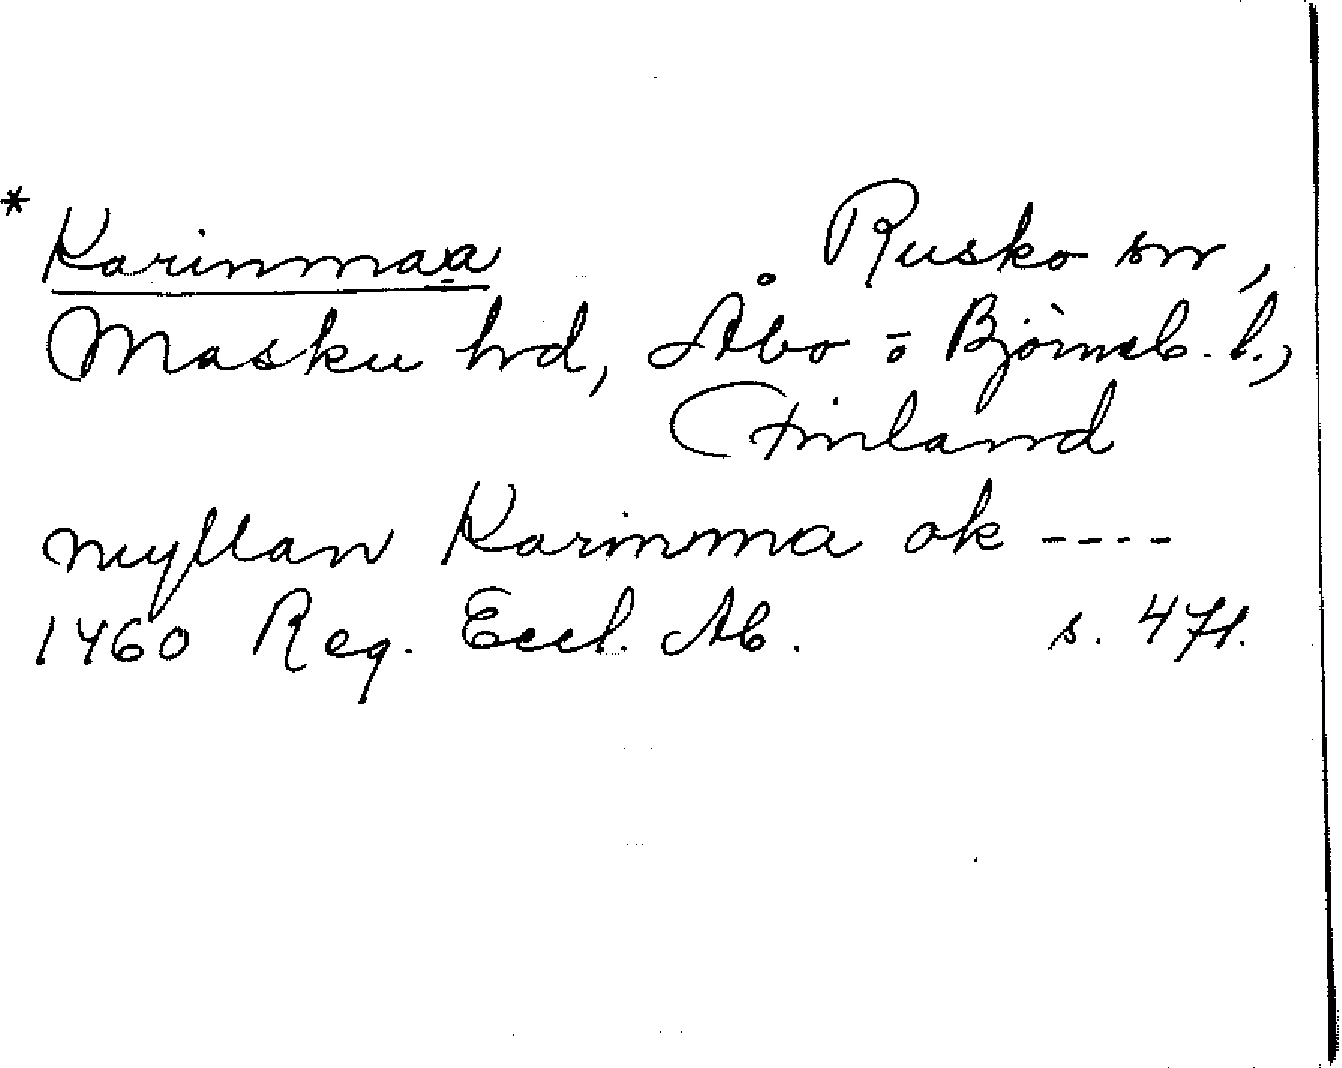 * Karinmaa Rusko sn,
Masku hd, Åbo ō Björneb. l.,
Finland
myllan Karinma ok ----
1460 Reg. Eccl. Ab. s. 471.